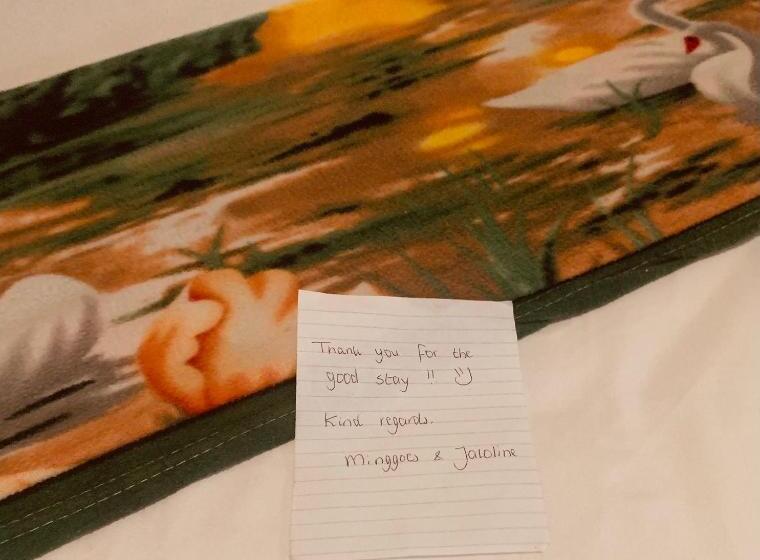 Thank you for the
good stay !! :)
Kind regards.
Minggoes & Jacoline